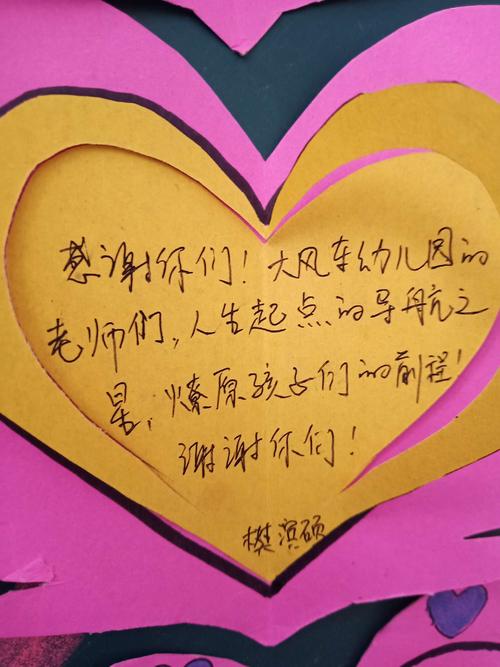 感谢你们！大风车幼儿园的
老师们，人生起点的导航之
星，燎原孩子们的前程！
谢谢你们！
樊滨硕